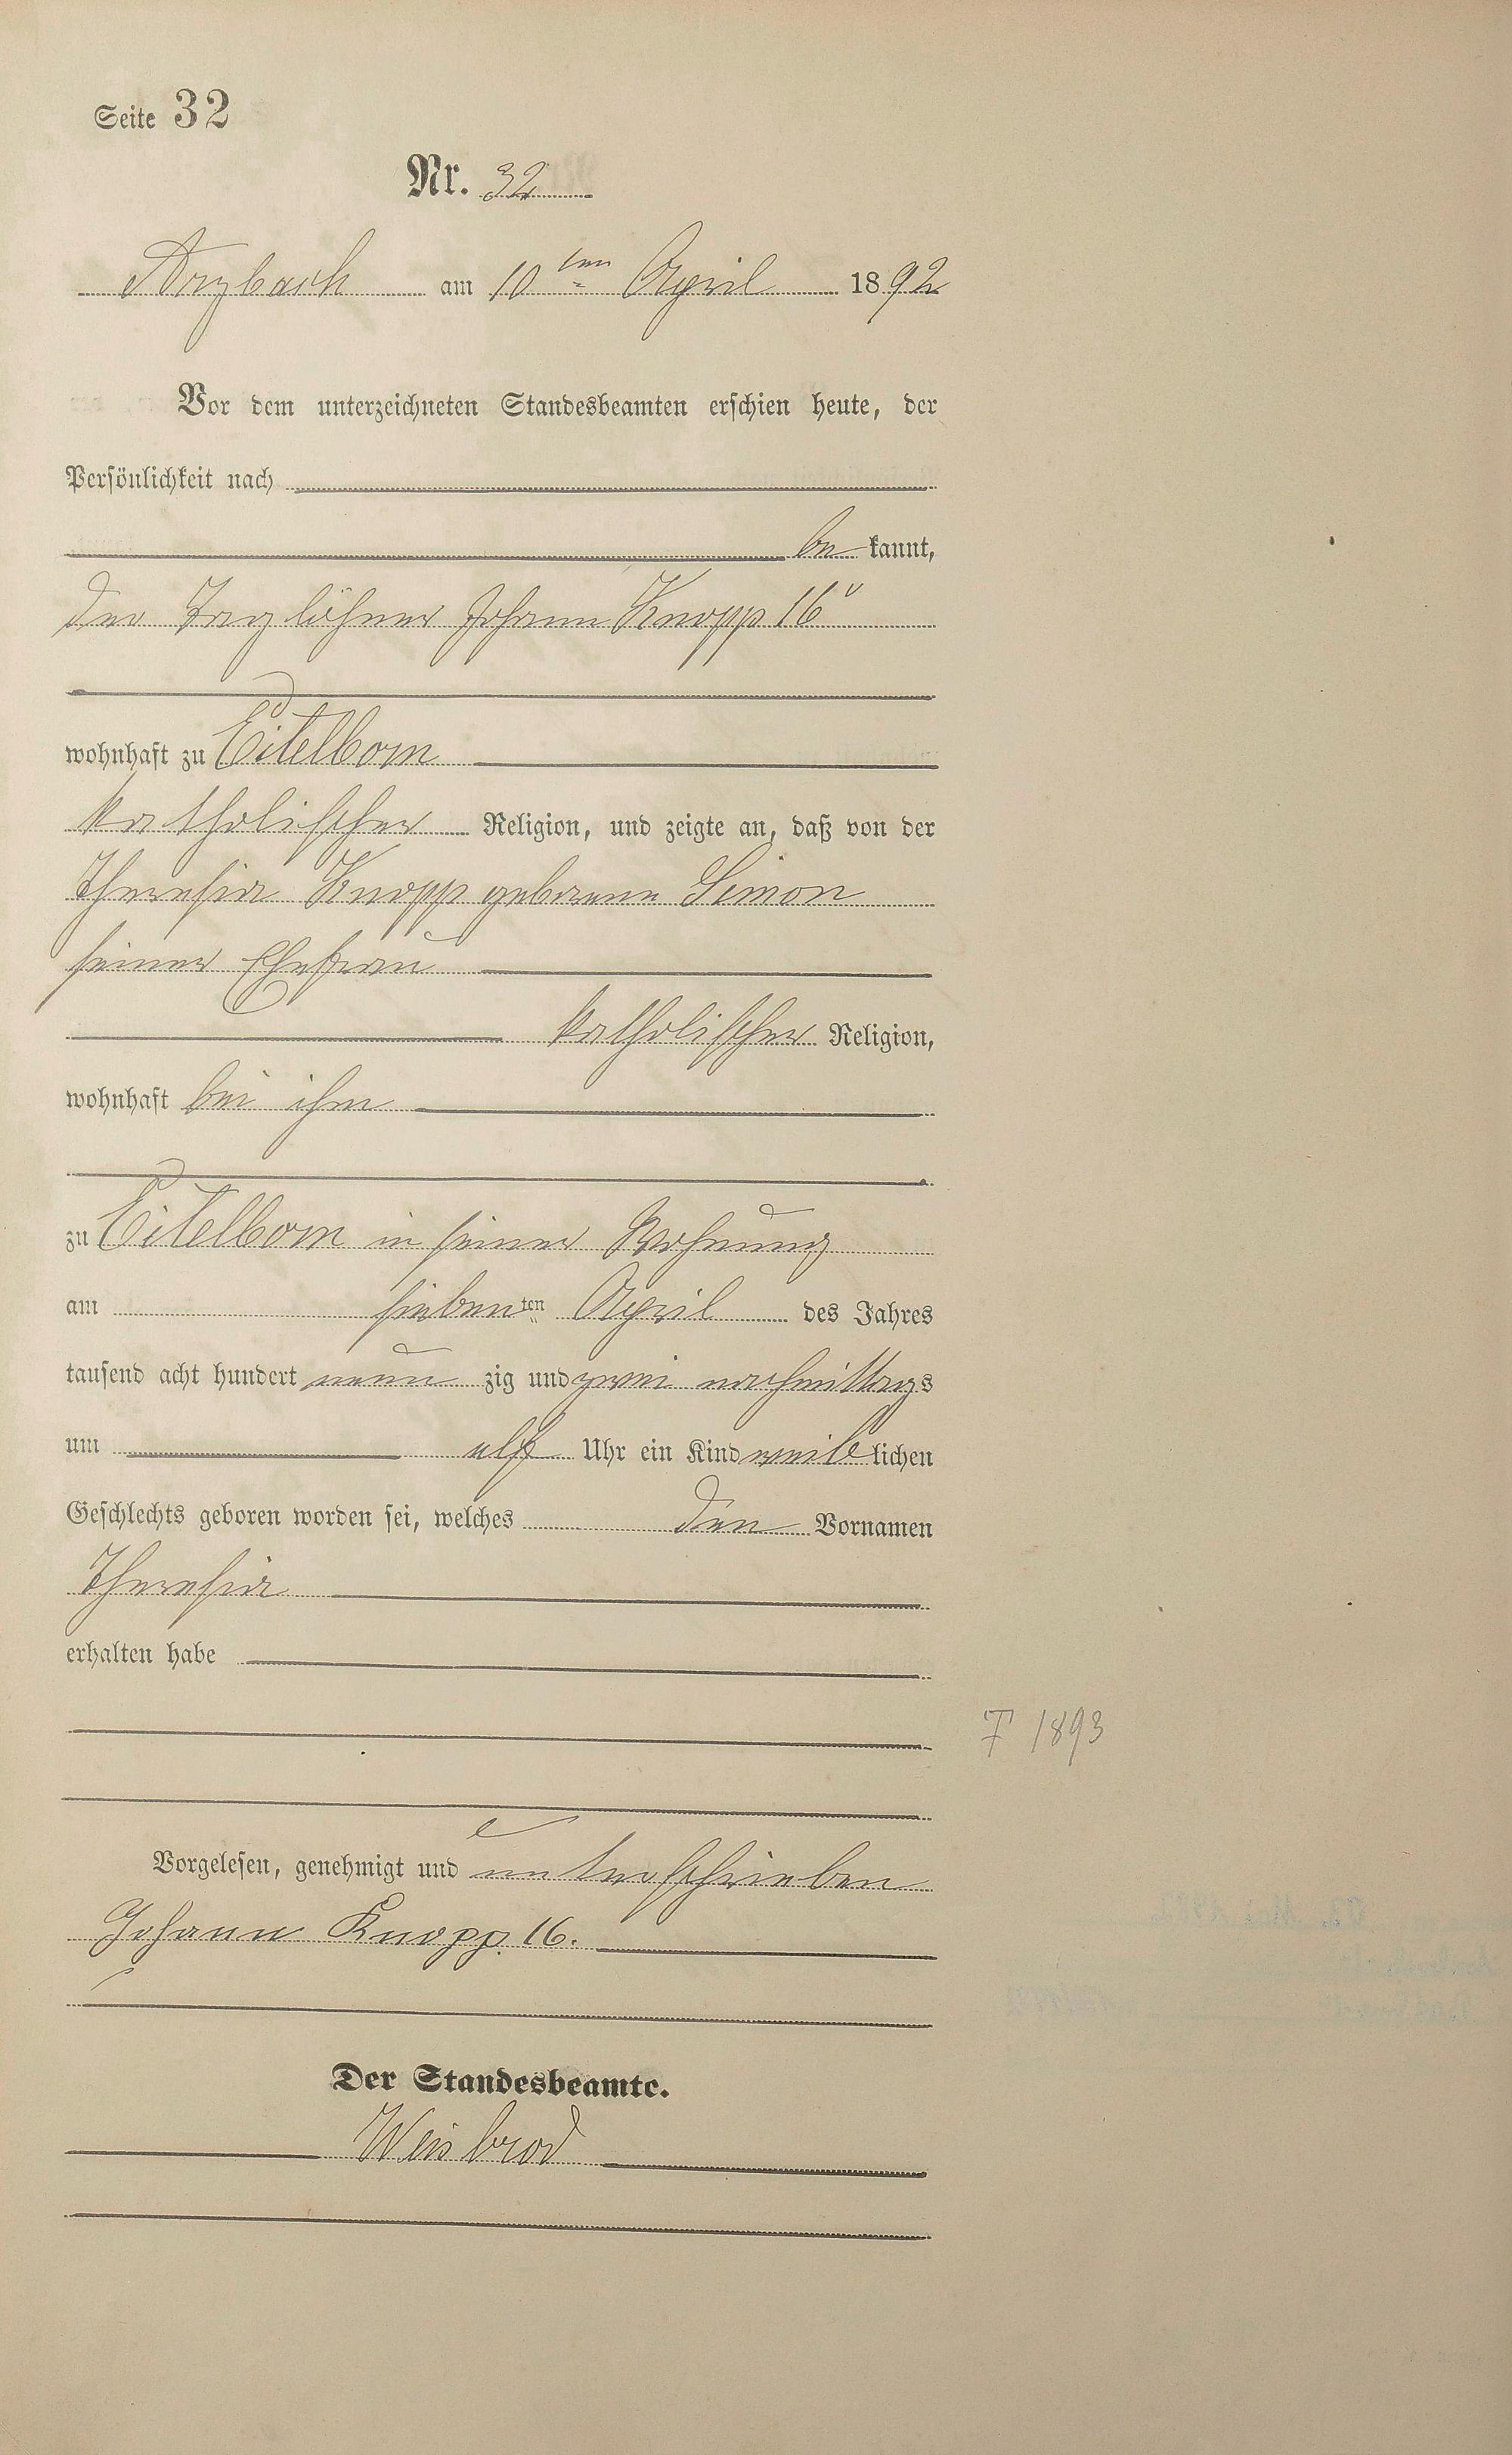 Seite 32
Nr. 32
Arzbach am 10ten April 1892
Vor dem unterzeichneten Standesbeamten erschien heute, der
Persönlichkeit nach
be kannt,
der Taglöhner Johann Knopp 16r
wohnhaft zu Eitelborn
katholischer Religion, und zeigte an, daß von der
Theresia Knopp geborene Simon
seiner Ehefrau
katholischer Religion,
wohnhaft bei ihm
zu Eitelborn in seiner Wohnung
am siebenten April des Jahres
tausend acht hundert neun zig und zwei nachmittags
um elf Uhr ein Kind weib lichen
Geschlechts geboren worden sei, welches den Vornamen
Theresia
erhalten habe
† 1893
Vorgelesen, genehmigt und unterschrieben
Johann Knopp 16.
Der Standesbeamte.
Weisbrod